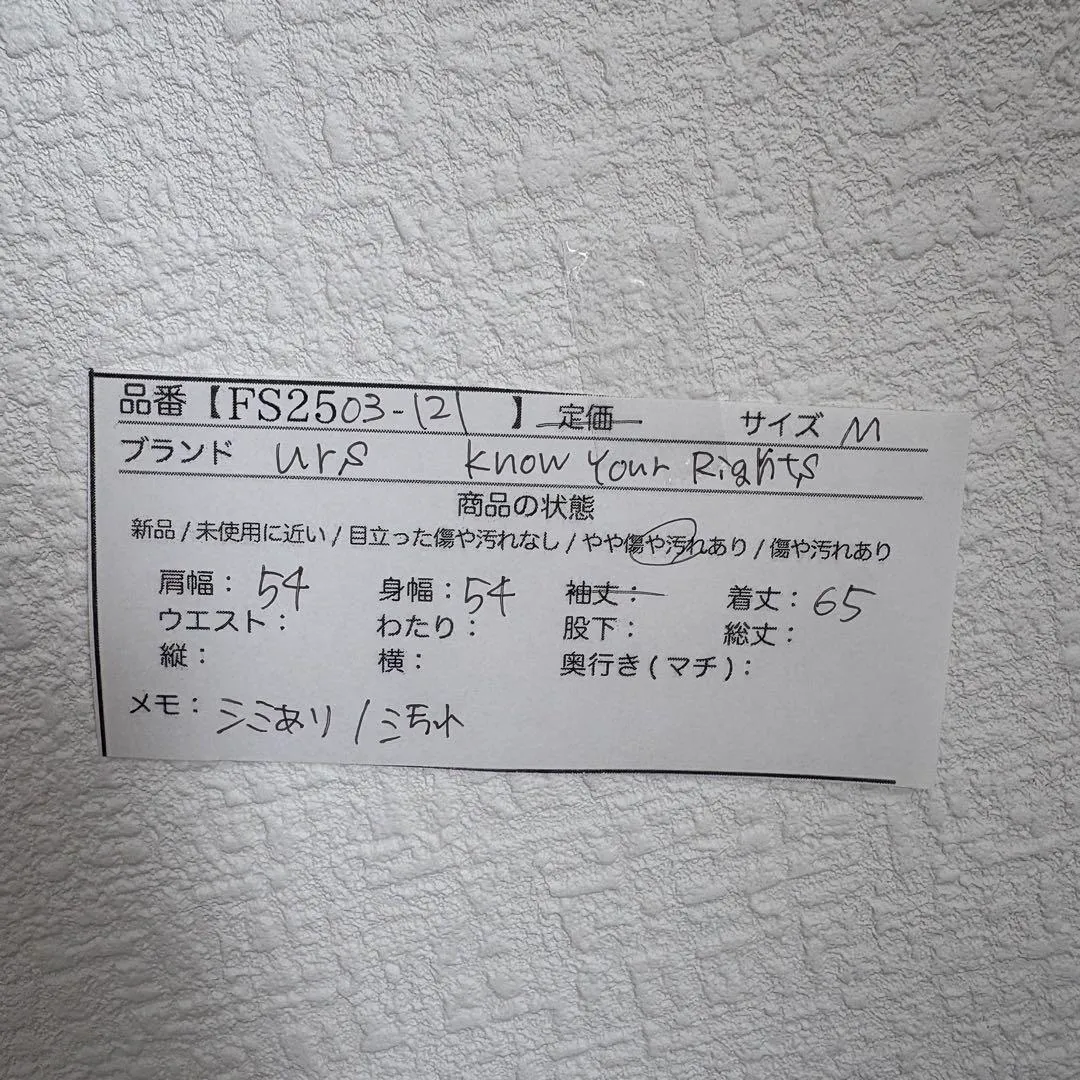 品番【FS2503-121 】 定価 サイズ M
ブランド urs know Your Rights
商品の状態
新品 / 未使用に近い / 目立った傷や汚れなし / やや傷や汚れあり / 傷や汚れあり
肩幅：54 身幅：54 袖丈： 着丈：65
ウエスト： わたり： 股下： 総丈：
縦： 横： 奥行き(マチ)：
メモ：シミあり /